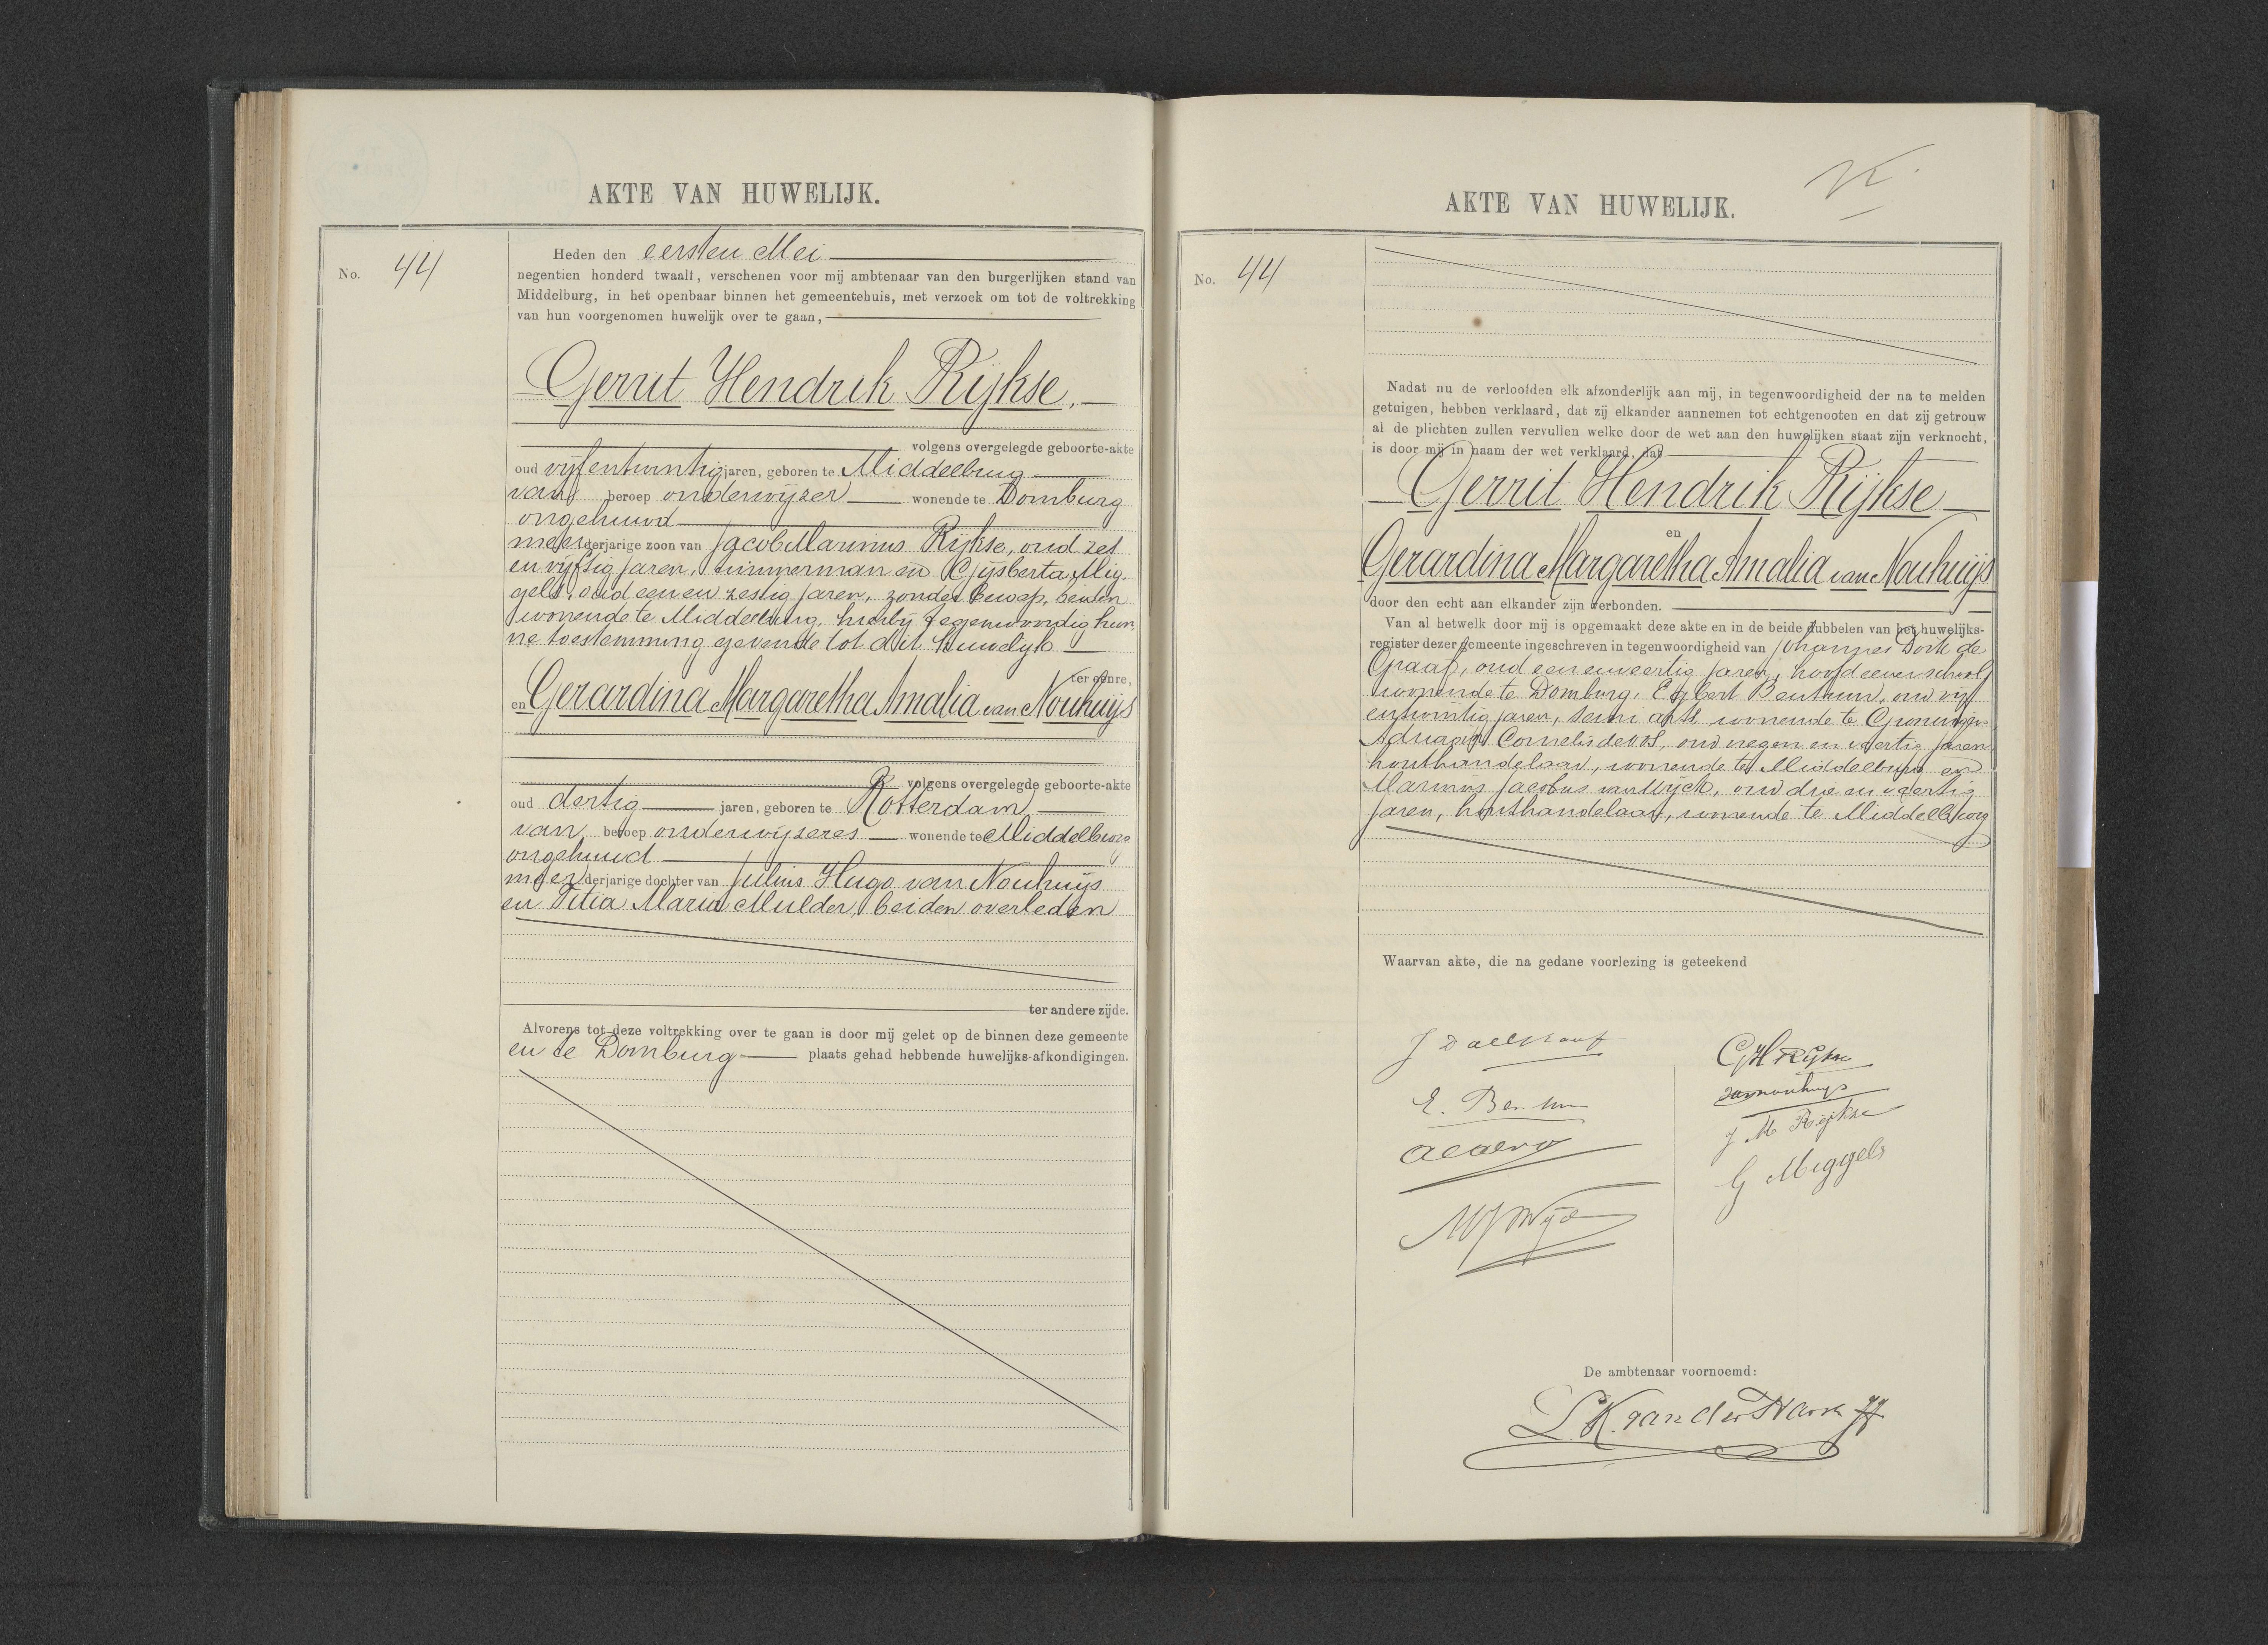 AKTE VAN HUWELIJK.
No. 44
Heden den eersten Mei
negentien honderd twaalf, verschenen voor mij ambtenaar van den burgerlijken stand van
Middelburg, in het openbaar binnen het gemeentehuis, met verzoek om tot de voltrekking
van hun voorgenomen huwelijk over te gaan,
Gerrit Hendrik Rijkse,
volgens overgelegde geboorte-akte
oud vijfentwintig jaren, geboren te Middelburg
van beroep onderwijzer wonende te Domburg
ongehuwd
meerderjarige zoon van Jacob Marinus Rijkse, oud zes
en vijftig jaren, timmerman en Gijsberta Mig-
gels, oud een en zestig jaren, zonder beroep, beiden
wonende te Middelburg, hierbij tegenwoordig hun-
ne toestemming gevende tot dit huwelijk
ter eenre,
en Gerardina Margaretha Amalia van Nouhuijs
volgens overgelegde geboorte-akte
oud dertig jaren, geboren te Rotterdam
van beroep onderwijzeres wonende te Middelburg
ongehuwd
meerderjarige dochter van Julius Hugo van Nouhuijs
en Titia Maria Mulder, beiden overleden
ter andere zijde.
Alvorens tot deze voltrekking over te gaan is door mij gelet op de binnen deze gemeente
en te Domburg plaats gehad hebbende huwelijks-afkondigingen.
AKTE VAN HUWELIJK.
No. 44
Nadat nu de verloofden elk afzonderlijk aan mij, in tegenwoordigheid der na te melden
getuigen, hebben verklaard, dat zij elkander aannemen tot echtgenooten en dat zij getrouw
al de plichten zullen vervullen welke door de wet aan den huwelijken staat zijn verknocht,
is door mij in naam der wet verklaard, dat
Gerrit Hendrik Rijkse
en
Gerardina Margaretha Amalia van Nouhuijs
door den echt aan elkander zijn verbonden.
Van al hetwelk door mij is opgemaakt deze akte en in de beide dubbelen van het huwelijks-
register dezer gemeente ingeschreven in tegenwoordigheid van Johannes de
Graaf, oud een en veertig jaren, hoofd eener school,
wonende te Domburg, Egbert Benthem, oud vijf
entwintig jaren, semi arts wonende te Groningen
Adriaan Cornelis de Vos, oud negen en veertig jaren
houthandelaar, wonende te Middelburg en
Marinus Jacobus van Wijck, oud drie en veertig
jaren, houthandelaar, wonende te Middelburg
Waarvan akte, die na gedane voorlezing is geteekend
J D de Graaf
GH Rijkse
E. Benthem
van Nouhuijs
J M Rijkse
ACdeVos
G Miggels
MJvWijck
De ambtenaar voornoemd:
L.K. van der Harst